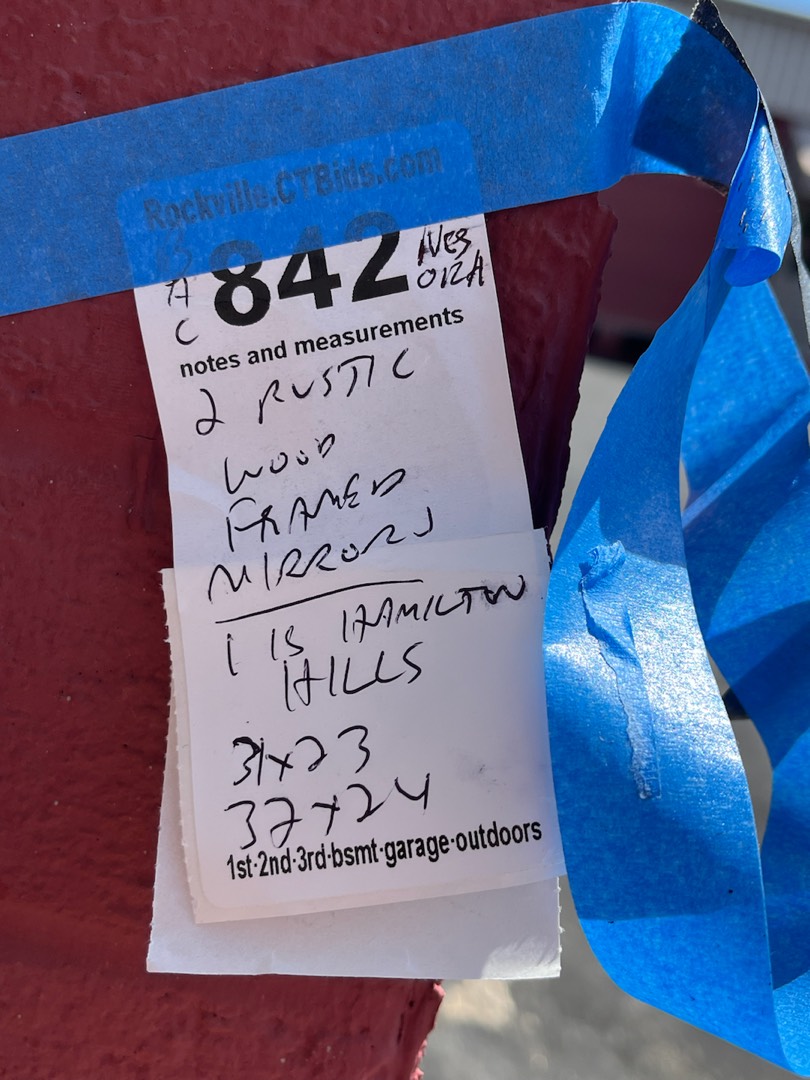 Rockville.CTBids.com
842
A
C
012A
notes and measurements
2 RUSTIC
WOOD
FRAMED
MIRRORS
1 IS HAMILTON
HILLS
31x23
32x24
1st·2nd·3rd·bsmt·garage·outdoors